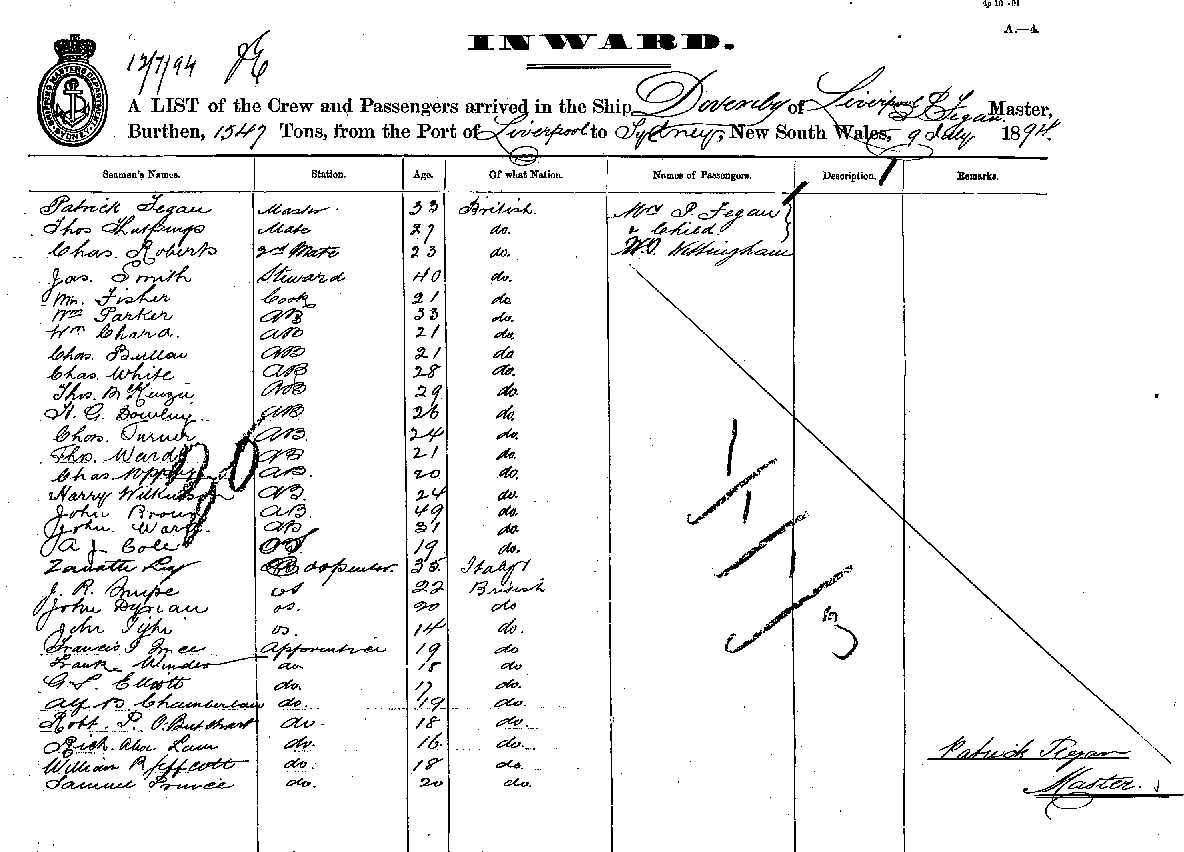 A.—4.
INWARD.
12/7/94
A LIST of the Crew and Passengers arrived in the Ship Dovenby of Liverpool P Fegan Master,
Burthen, 1547 Tons, from the Port of Liverpool to Sydney, New South Wales, 9 July 1894.
Seamen's Names. Station. Age. Of what Nation. Names of Passengers. Description. Remarks.
Patrick Fegan Master 33 British. Mrs P. Fegan
Thos Mate 27 do. & Child
Chas. Roberts 2nd Mate 23 do. Nottingham
Jas. Smith Steward 40 do.
Wm. Fisher Cook 21 do
Wm Parker AB 33 do.
Wm Chard. AB 21 do.
Chas. AB 21 do
Chas. White AB 28 do.
Thos. McKenzie AB 29 do.
H. G. Dowling AB 26 do.
Chas. Turner AB. 24 do.
Thos. Ward AB 21 do.
Chas. AB. 20 do.
Harry Wilkinson AB. 24 do.
John Brown AB. 49 do.
John. Ward AB 31 do.
A J. Cole OS 19 do.
Zanatta Carpenter. 35. Italy
J. R. os 22 British
John os. 20 do
John os. 14 do.
Francis Apprentice 19 do
Frank Winder do 18 do
G. S. Elliott do. 17 do.
Alf B Chamberlain do. 19 do.
Robt. P. O. Butchart do. 18 do.
Rich. Law do. 16. do.
William R Jeffcott do. 18 do.
Samuel Prince do. 20 do.
20
1
1
1
3
Patrick Fegan
Master.